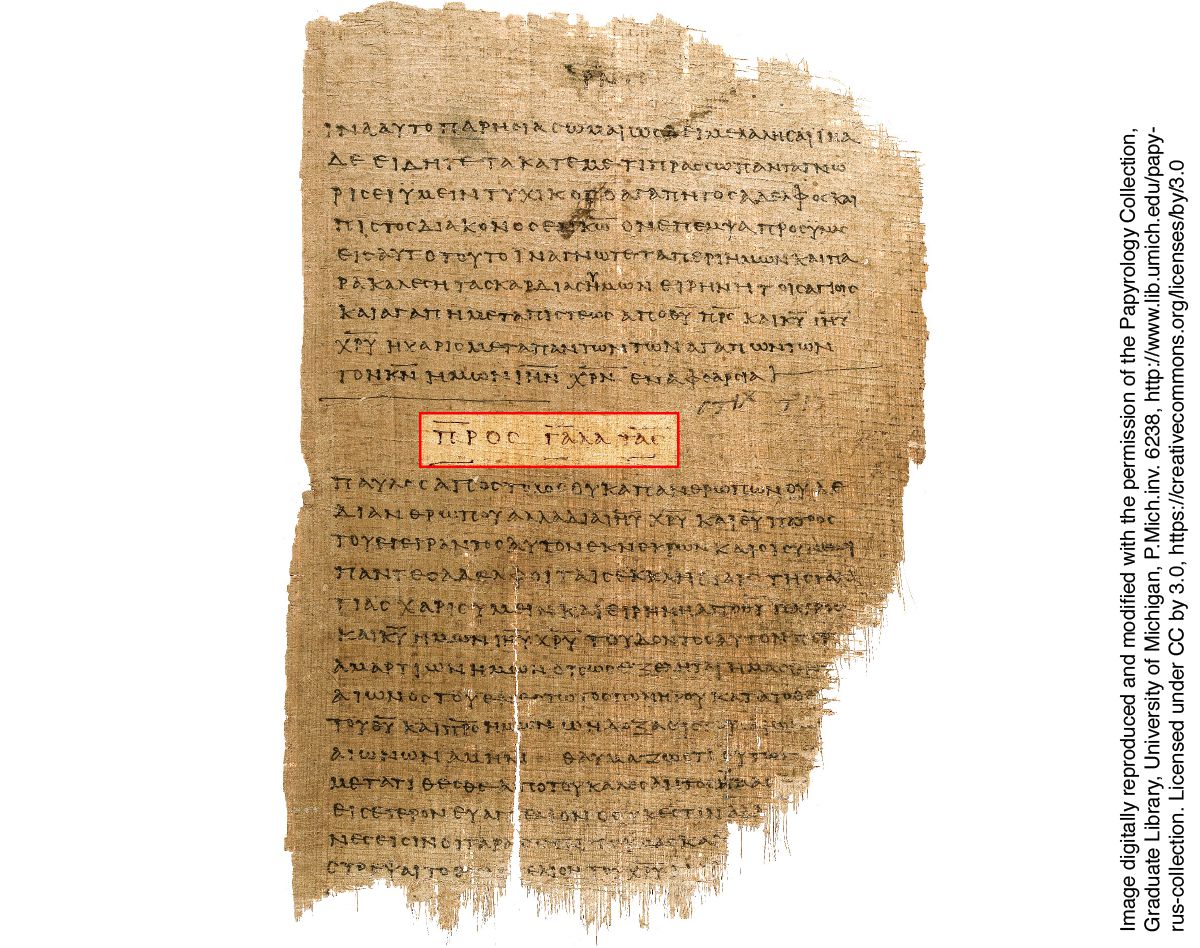 ΙΝΑΑΥΤΟΠΑΡΗϹΙΑϹΩΜΑΙΩϹΔΕΙΜΕΛΑΛΗϹΑΙΙΝΑ
ΔΕΕΙΔΗΤΕΤΑΚΑΤΕΜΕΤΙΠΡΑϹϹΩΠΑΝΤΑΓΝΩ
ΡΙϹΕΙΥΜΕΙΝΤΥΧΙΚΟϹΟΑΓΑΠΗΤΟϹΑΔΕΛΦΟϹΚΑΙ
ΠΙϹΤΟϹΔΙΑΚΟΝΟϹΕΝΚ̅Ω̅ ΟΝΕΠΕΜΨΑΠΡΟϹΥΜΑϹ
ΕΙϹΑΥΤΟΤΟΥΤΟΙΝΑΓΝΩΤΕΤΑΠΕΡΙΗΜΩΝΚΑΙΠΑ
ΡΑΚΑΛΕϹΗΤΑϹΚΑΡΔΙΑϹΗΜΩΝ ΕΙΡΗΝΗΤΟΙϹΑΓΙΟΙϹ
ΚΑΙΑΓΑΠΗΜΕΤΑΠΙϹΤΕΩϹ ΑΠΟΘΥ Π̅Ρ̅Ϲ̅ ΚΑΙΚ̅Υ̅ Ι̅Η̅Υ̅
Χ̅Ρ̅Υ̅ ΗΧΑΡΙϹΜΕΤΑΠΑΝΤΩΝΤΩΝΑΓΑΠΩΝΤΩΝ
ΤΟΝΚ̅Ν̅ ΗΜΩΝ Ι̅Η̅Ν̅ Χ̅Ρ̅Ν̅ ΕΝΑΦΘΑΡϹΙΑ
ΠΡΟϹ ΓΑΛΑΤΑϹ
ΠΑΥΛΟϹΑΠΟϹΤΟΛΟϹΟΥΚΑΠΑΝΘΡΩΠΩΝΟΥΔΕ
ΔΙΑΝΘΡΩΠΟΥΑΛΛΑΔΙΑΙ̅Η̅Υ̅ Χ̅Ρ̅Υ̅ ΚΑΙΘ̅Υ̅ Π̅Α̅Τ̅Ρ̅Ο̅Ϲ̅
ΤΟΥΕΓΕΙΡΑΝΤΟϹΑΥΤΟΝΕΚΝΕΚΡΩΝ ΚΑΙΟΙϹΥΝΕΜΟΙ
ΠΑΝΤΕϹΑΔΕΛΦΟΙΤΑΙϹΕΚΚΛΗϹΙΑΙϹ ΤΗϹΓΑΛΑ
ΤΙΑϹ ΧΑΡΙϹΥΜΕΙΝΚΑΙΕΙΡΗΝΗΑΠΟΘ̅Υ̅ ΠΑΤΡΟϹ
ΚΑΙΚ̅Υ̅ ΗΜΩΝ Ι̅Η̅Υ̅ Χ̅Ρ̅Υ̅ ΤΟΥΔΟΝΤΟϹΑΥΤΟΝΠΕΡ
ΑΜΑΡΤΙΩΝΗΜΩΝΟΠΩϹ ΕΞΕΛΗΤΑΙΗΜΑϹ
ΑΙΩΝΟϹΤΟΥΕΝΕϹΤΩΤΟϹΠΟΝΗΡΟΥΚΑΤΑΤΟΘΕ
ΤΟΥΘ̅Υ̅ ΚΑΙΠ̅Ρ̅Ο̅ϹΗΜΩΝ ΩΗΔΟΞΑΕΙϹ
ΑΙΩΝΩΝΑΜΗΝ ΘΑΥΜΑΖΩΟΤΙΟΥΤΩϹ
ΜΕΤΑΤΙΘΕϹΘΕΑΠΟΤΟΥΚΑΛΕϹΑΝΤΟϹ
ΕΙϹΕΤΕΡΟΝΕΥΑΓΓΕΛΙΟΝΟΟΥΚΕϹΤΙΝΑΛΛ
ΝΕϹΕΙϹΙΝΟΙΤΑΡΑ
ϹΤΡΕΨΑΙΤΟ ΤΟΥΧ̅Ρ̅Υ̅
Image digitally reproduced and modified with the permission of the Papyrology Collection,
Graduate Library, University of Michigan, P.Mich.inv. 6238, http://www.lib.umich.edu/papy-
rus-collection. Licensed under CC by 3.0, https://creativecommons.org/licenses/by/3.0